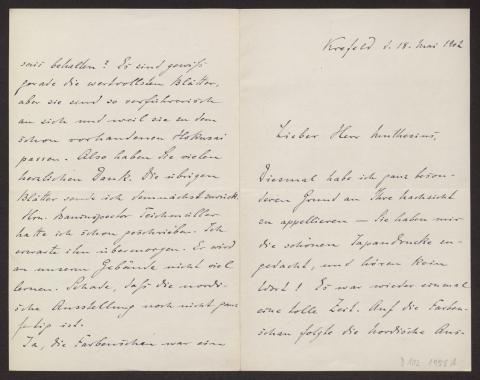 Krefeld d. 18. Mai 1902
Lieber Herr Muthesius,
Diesmal habe ich ganz beson-
deren Grund an Ihre Nachsicht
zu appellieren — Sie haben mir
die schönen Japandrucke zu-
gedacht, und hören kein
Wort! Es war wieder einmal
eine tolle Zeit. Auf die Farben-
schau folgte die nordische Aus-
D 102-1955 A
behalten? Es sind gewiß
gerade die wertvollsten Blätter,
aber sie sind so verführerisch
an sich und weil sie zu dem
schon vorhandenen Hokusai
passen. Also haben Sie vielen
herzlichen Dank. Die übrigen
Blätter sende ich demnächst zurück.
Hrn. Bauinspector Teichmüller
hatte ich schon geschrieben. Ich
erwarte ihn übermorgen. Er wird
an unserm Gebäude nicht viel
lernen. Schade, daß die nordi-
sche Ausstellung noch nicht ganz
fertig ist.
Ja, die Farbenschau war ein